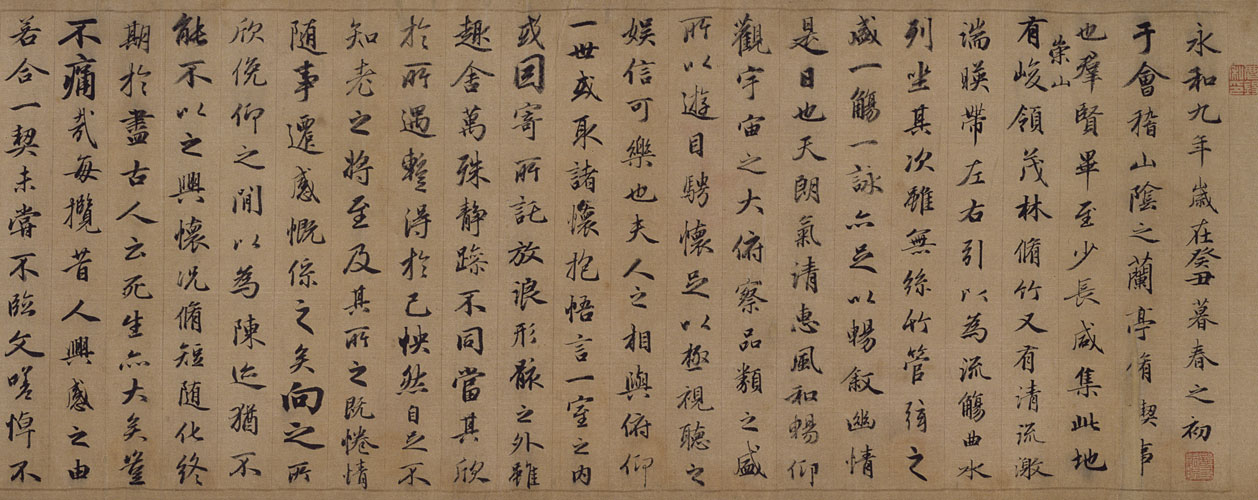 永和九年歲在癸丑暮春之初
于會稽山陰之蘭亭脩禊事
也羣賢畢至少長咸集此地
崇山
有峻領茂林脩竹又有清流激
湍暎帶左右引以為流觴曲水
列坐其次雖無絲竹管弦之
盛一觴一詠亦足以暢叙幽情
是日也天朗氣清惠風和暢仰
觀宇宙之大俯察品類之盛
所以遊目騁懷足以極視聽之
娛信可樂也夫人之相與俯仰
一世或取諸懷抱悟言一室之內
或因寄所託放浪形骸之外雖
趣舍萬殊靜躁不同當其欣
於所遇蹔得於己怏然自足不
知老之將至及其所之既惓情
隨事遷感慨係之矣向之所
欣俛仰之間以為陳迹猶不
能不以之興懷況脩短隨化終
期於盡古人云死生亦大矣豈
不痛哉每攬昔人興感之由
若合一契未嘗不臨文嗟悼不